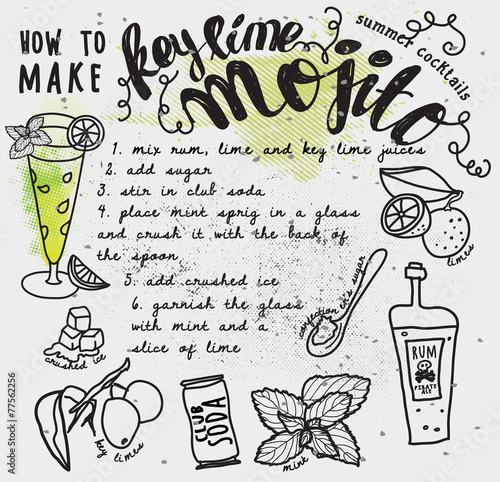 HOW TO
MAKE
key lime
mojito
summer cocktails
1. mix rum, lime and key lime juices
2. add sugar
3. stir in club soda
4. place mint sprig in a glass
and crush it with the back of
the spoon
5. add crushed ice
6. garnish the glass
with mint and a
slice of lime
limes
confectioner's sugar
crushed ice
key limes
CLUB
SODA
mint
RUM
PIRATE
ALE
Adobe Stock | #77562256